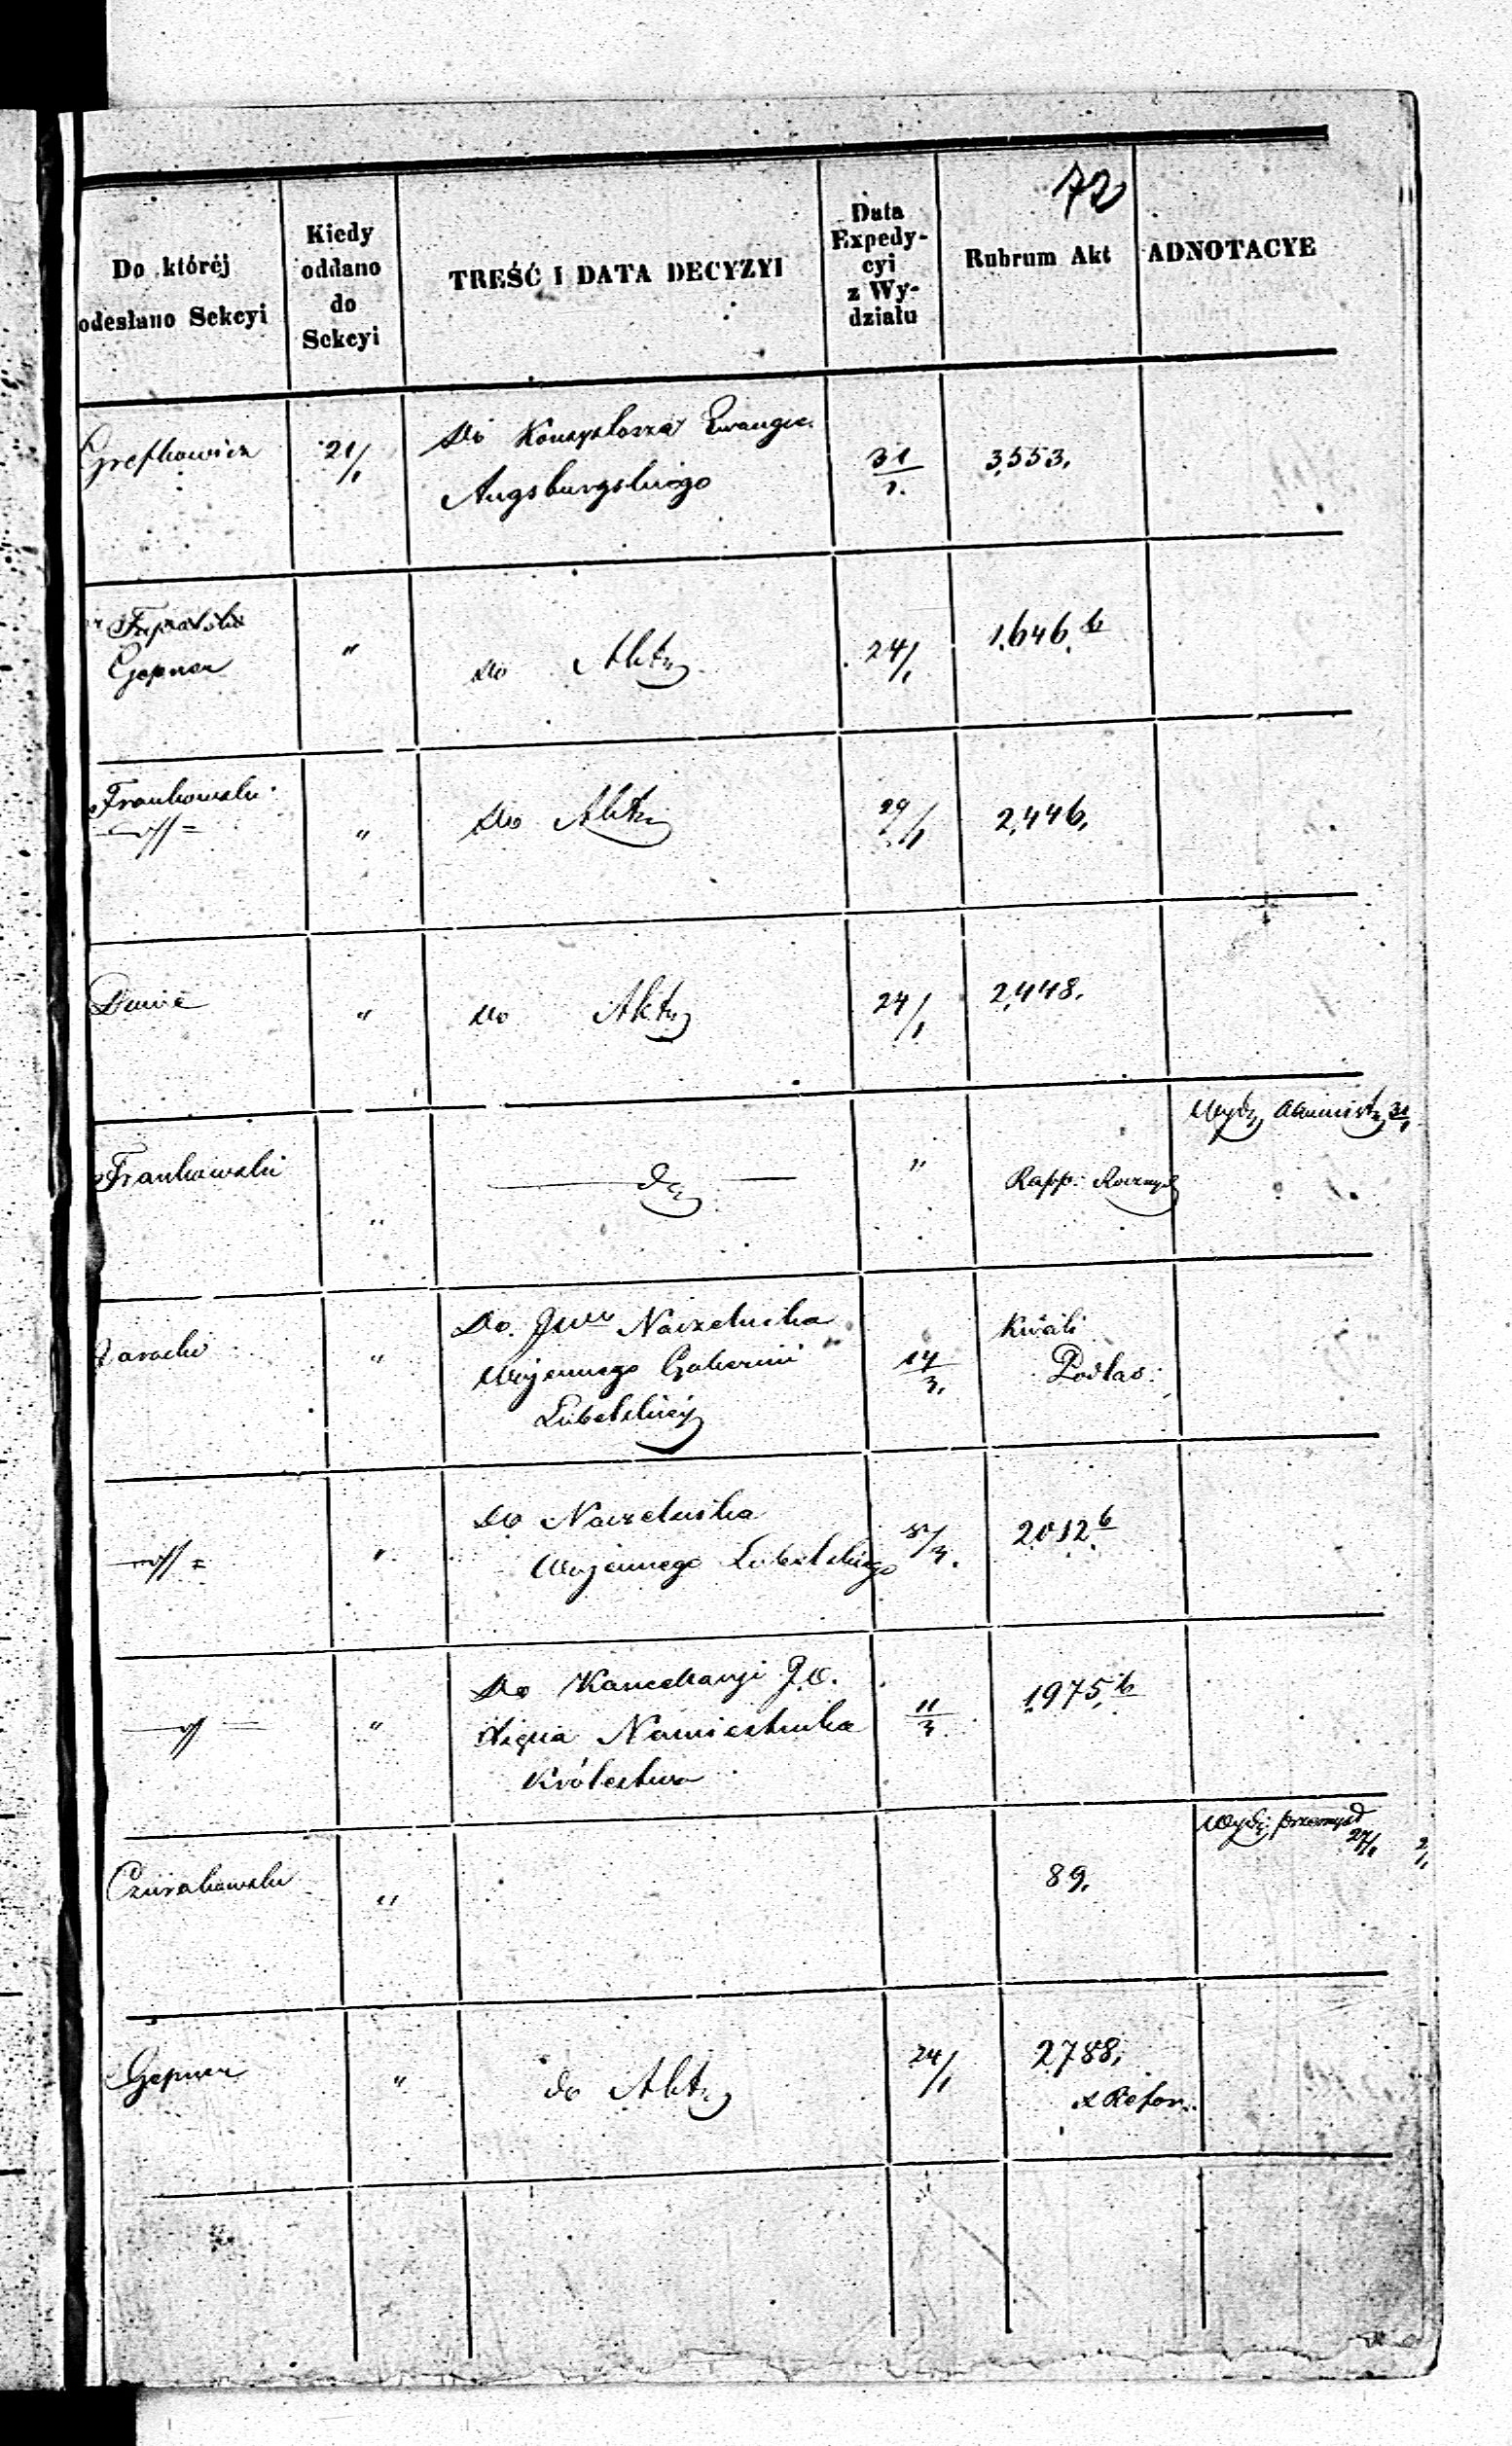 72
Do któréj
odesłano Sekcyi
Kiedy
oddano
do
Sekcyi
TREŚĆ I DATA DECYZYI
Data
Expedy-
cyi
z Wy-
działu
Rubrum Akt
ADNOTACYE
21/1
Do Konsystorza Ewangie.
Augsburgskiego
31/1.
3553.
Gepner
"
do Akt
24/1
1646 b
Frankowski
"
do Akt
29/1
2446.
"
do Akt
24/1
2448.
Frankowski
"
"
Rapp: Roczny
Administ 31/1
"
Do JWo Naczelnika
Wojennego Gubernii
Lubelskiej
14/3.
Podlas:
"
Do Naczelnika
Wojennego Lubelskiego
/3.
2012 b
"
Do Kancellaryi J.O.
Xięcia Namiestnika
Królestwa
11/3
1975 b
"
89.
Wydz: przemysł
27/1
Gepner
"
do Akt
24/1
2788.